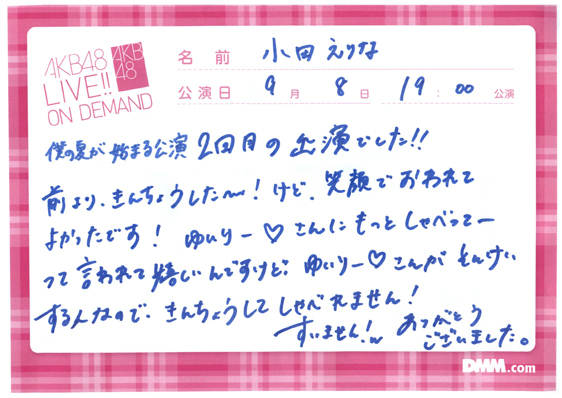 AKB48
LIVE!!
ON DEMAND
AKB
48
名前 小田えりな
公演日 9月 8日 19:00公演
僕の夏が始まる公演 2回目の出演でした!!
前より、きんちょうした〜!けど、笑顔でおわれて
よかったです! ゆいりー♡さんにもっとしゃべってー
って言われて嬉しいんですけど、ゆいりー♡さんがそんけい
する人なので、きんちょうしてしゃべれません!
すいません!w ありがとう
ございました。
DMM.com